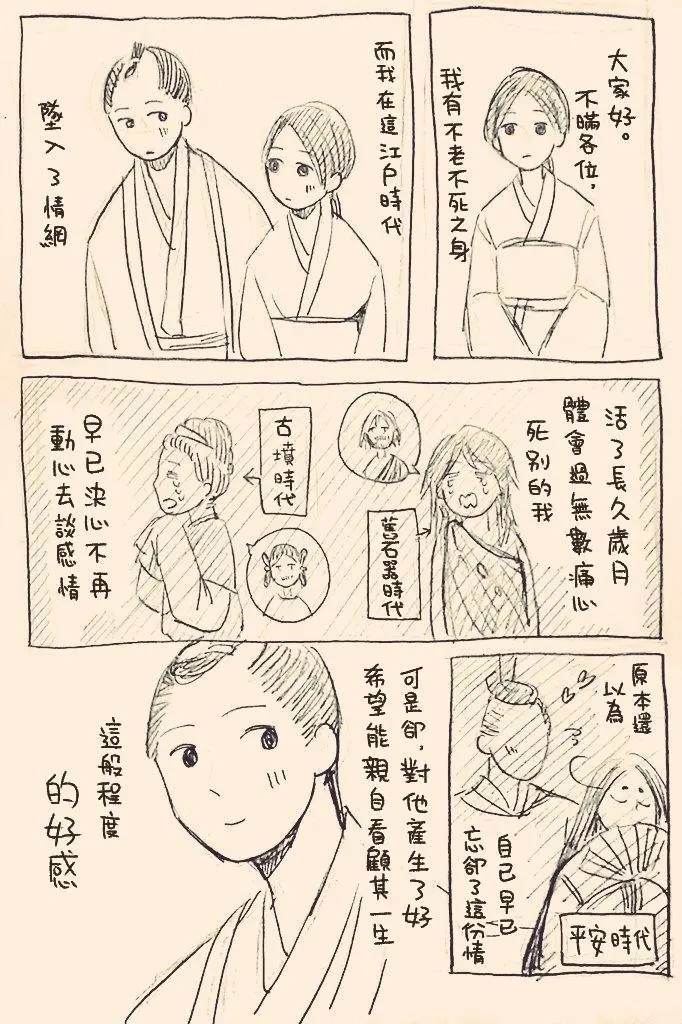 大家好。
不瞞各位，
我有不老不死之身
而我在這江戶時代
墜入了情網
活了長久歲月
體會過無數痛心
死別的我
舊石器時代
古墳時代
早已決心不再
動心去談感情
原本還
以為
自己早已
忘卻了這份情
平安時代
可是卻，對他產生了好
希望能親自看顧其一生
這般程度
的好感